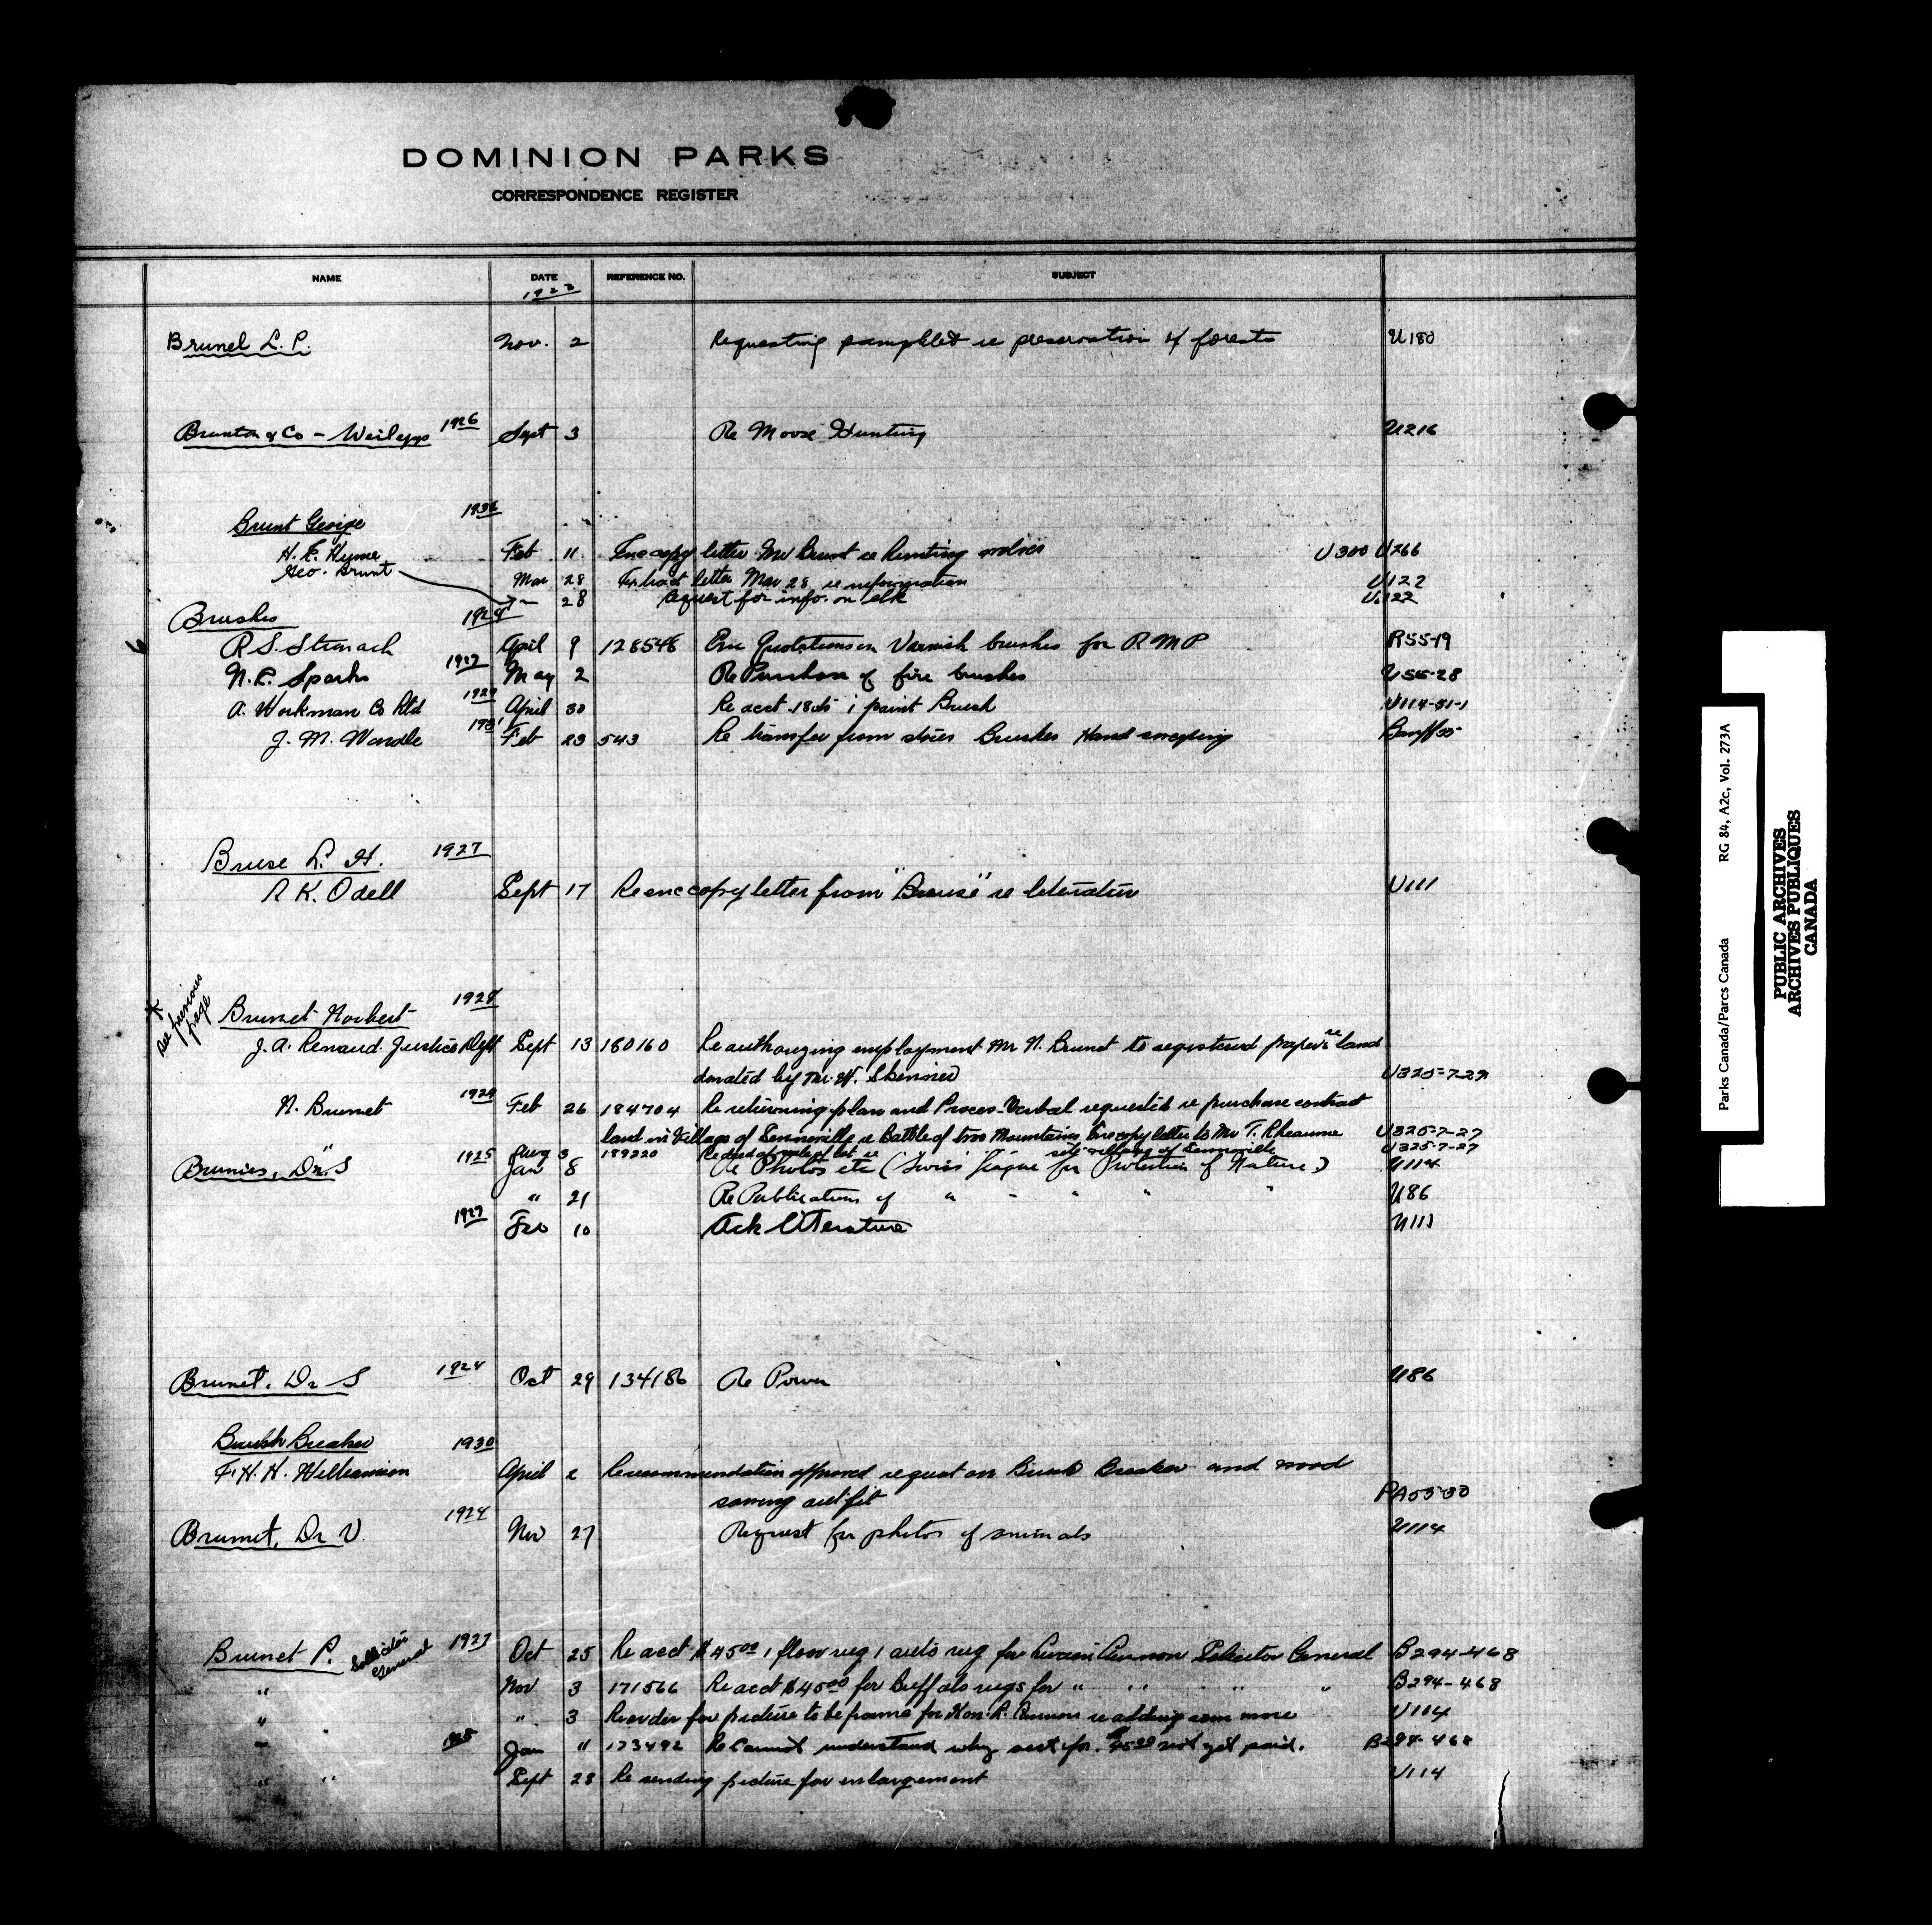 DOMINION PARKS
CORRESPONDENCE REGISTER
NAME DATE REFERENCE NO. SUBJECT
1923
Brunel L. P. Nov. 2 Requesting pamphlet re preservation of forests U180
Brunton & Co - 1926 Sept 3 Re Moose Hunting U216
Brunt George 1936
H. E. Hyme Feb 11 Enc copy letter Mr Brunt re hunting wolves U300 U266
Geo. Brunt Mar 28 Extract letter Mar 28 re information U122
" 28 Request for info. on elk U122
Brushes 1924
R S. Stronach April 9 128548 Enc Quotations on Varnish brushes for R M P R55-19
N. C. Sparks 1927 May 2 Re Purchase of fire brushes U55-28
A. Workman Co Ltd 1929 April 30 Re acct 1 paint Brush U114-51-1
J. M. Wardle 1931 Feb 23 543 Re transfer from stores Brushes Hand sweeping Banff 55
Bruse L. H. 1927
R K. Odell Sept 17 Re enc copy letter from "Bruse" re literature U111
* see previous page
Brunet Norbert 1928
J. A. Renaud. Justice Dept Sept 13 180160 Re authorizing employment Mr N. Brunet to registered papers re land
donated by Mr. W. Skinner U325-7-27
N. Brunet 1929 Feb 26 184704 Re returning plan and Proces-Verbal requested re purchase contract
land in Village of Senneville re Battle of two Mountains Enc copy letter to Mr T. Rheaume U325-7-27
Aug 3 189220 Re deed of sale of lot re site village of Senneville U325-7-27
Brunies, Dr. S 1925 Jan 8 Re Photos etc (Swiss League for Protection of Nature) U114
" 21 Re Publications of " " " " " U86
1927 Feb 10 Ack Literature U111
Brunet, Dr S 1924 Oct 29 134186 Re Power U86
Brush Breaker 1930
F. H. H. Williamson April 2 Recommendation approved request on Brush Breaker and wood
sawing outfit PA55-30
Brumet, Dr V. 1924 Nov 27 Request for photos of animals U114
Brunet P. Solicitor General 1927 Oct 25 Re acct $45.00 1 floor rug 1 auto rug for Lucien Cannon Solicitor General B294-468
" Nov 3 171566 Re acct $45.00 for Buffalo rugs for " " " " B294-468
" " " 3 Re order for picture to be frame for Hon. L. Cannon re adding some more U114
" 1928 Jan 11 173492 Re Cannot understand why acct for $45.00 not yet paid. B294-468
" " Sept 28 Re sending picture for enlargement U114
Parks Canada/Parcs Canada RG 84, A2c, Vol. 273A
PUBLIC ARCHIVES
ARCHIVES PUBLIQUES
CANADA